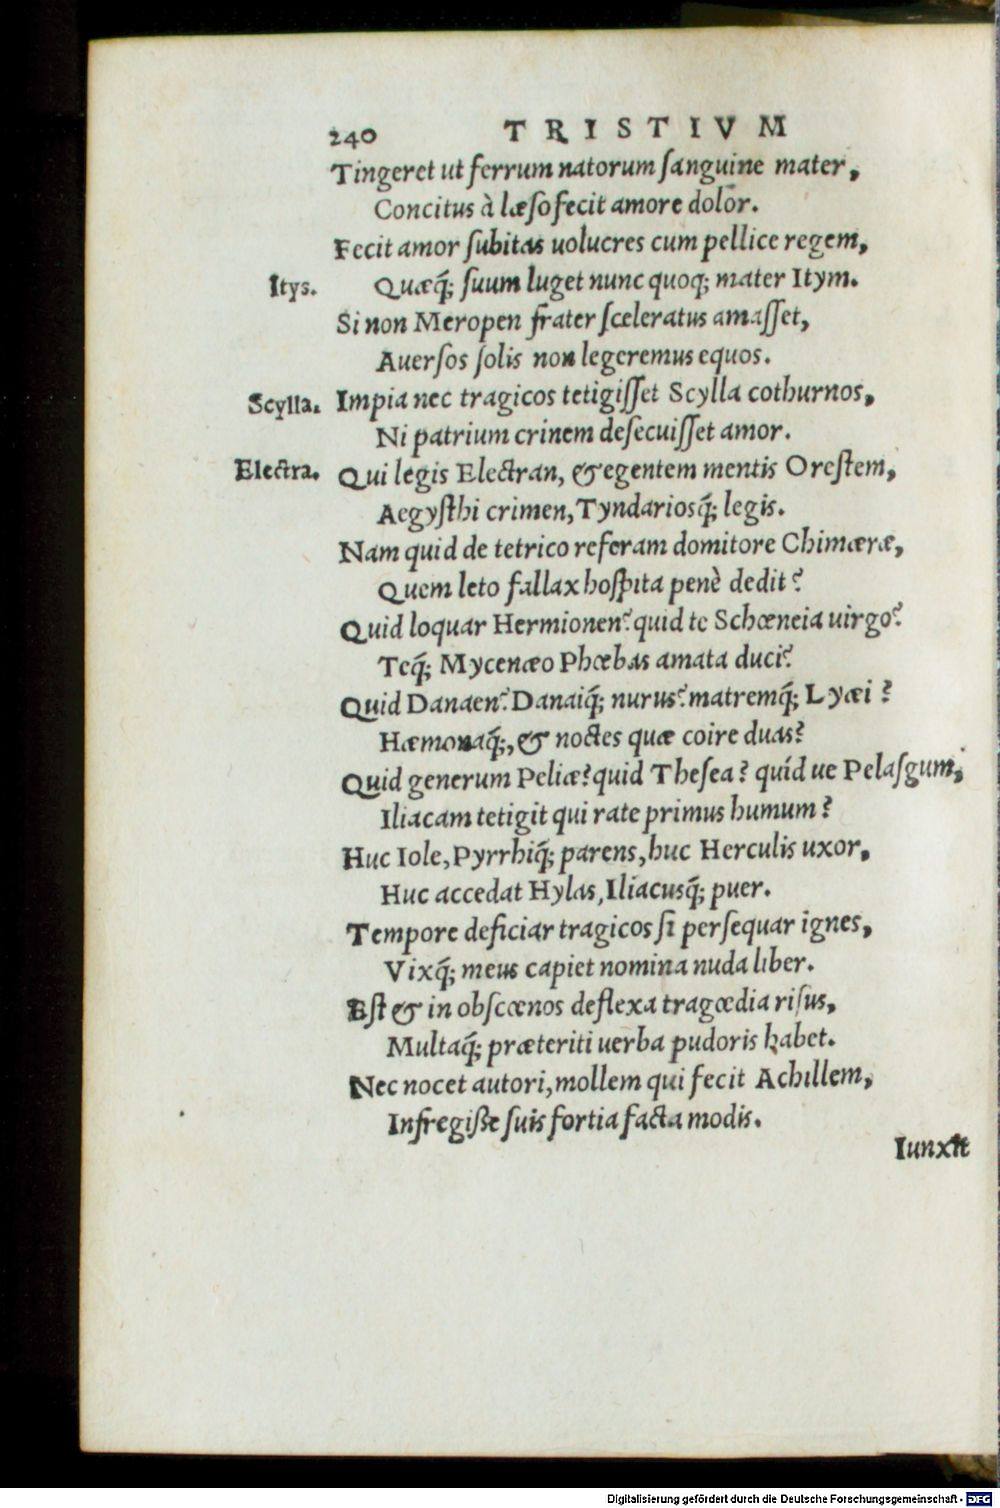 240 TRISTIVM
Tingeret ut ferrum natorum sanguine mater,
Concitus à læso fecit amore dolor.
Fecit amor subitas uolucres cum pellice regem,
Itys. Quæq́; suum luget nunc quoq; mater Itym.
Si non Meropen frater sceleratus amasset,
Auersos solis non legeremus equos.
Scylla. Impia nec tragicos tetigisset Scylla cothurnos,
Ni patrium crinem desecuisset amor.
Electra. Qui legis Electran, & egentem mentis Orestem,
Aegysthi crimen, Tyndariosq́; legis.
Nam quid de tetrico referam domitore Chimæræ,
Quem leto fallax hospita penè dedit?
Quid loquar Hermionen? quid te Schœneia uirgo?
Teq́; Mycenæo Phœbas amata duci?
Quid Danaen? Danaiq́; nurus? matremq́; Lyæi?
Hæmonaq́;, & noctes quæ coire duas?
Quid generum Peliæ? quid Thesea? quíd ue Pelasgum,
Iliacam tetigit qui rate primus humum?
Huc Iole, Pyrrhiq́; parens, huc Herculis uxor,
Huc accedat Hylas, Iliacusq́; puer.
Tempore deficiar tragicos si persequar ignes,
Vixq́; meus capiet nomina nuda liber.
Est & in obscœnos deflexa tragœdia risus,
Multaq́; præteriti uerba pudoris habet.
Nec nocet autori, mollem qui fecit Achillem,
Infregisse suis fortia facta modis.
Iunxit
Digitalisierung gefördert durch die Deutsche Forschungsgemeinschaft - DFG